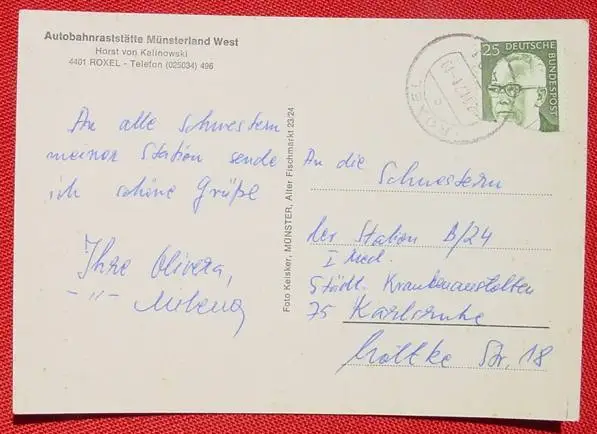 Autobahnraststätte Münsterland West
Horst von Kalinowski
4401 ROXEL - Telefon (025034) 496
An alle Schwestern
meiner Station sende
ich schöne Grüße
Ihre Olivera,
-"- Milena
Foto Keisker, MÜNSTER, Alter Fischmarkt 23/24
ROXEL
25 DEUTSCHE
BUNDESPOST
An die Schwestern
der Station B/24
I Med.
Städt. Krankenanstalten
75 Karlsruhe
Moltke Str. 18